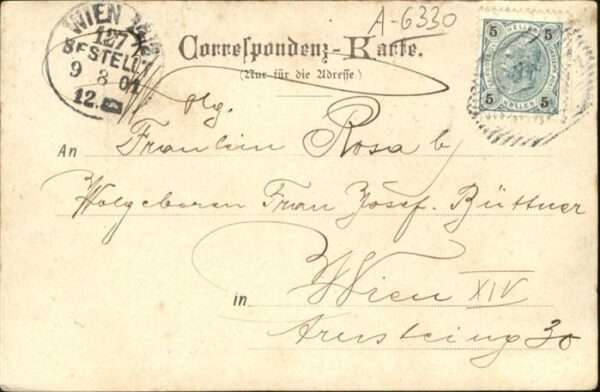 A-6330
WIEN
127
BESTELLT
9 8 01
12.
5 5
HELLER
5 5
Correspondenz-Karte.
(Nur für die Adresse)
An Fräulein Rosa b/
Wolgeboren Frau Josef Büttner
in Wien XIV
30